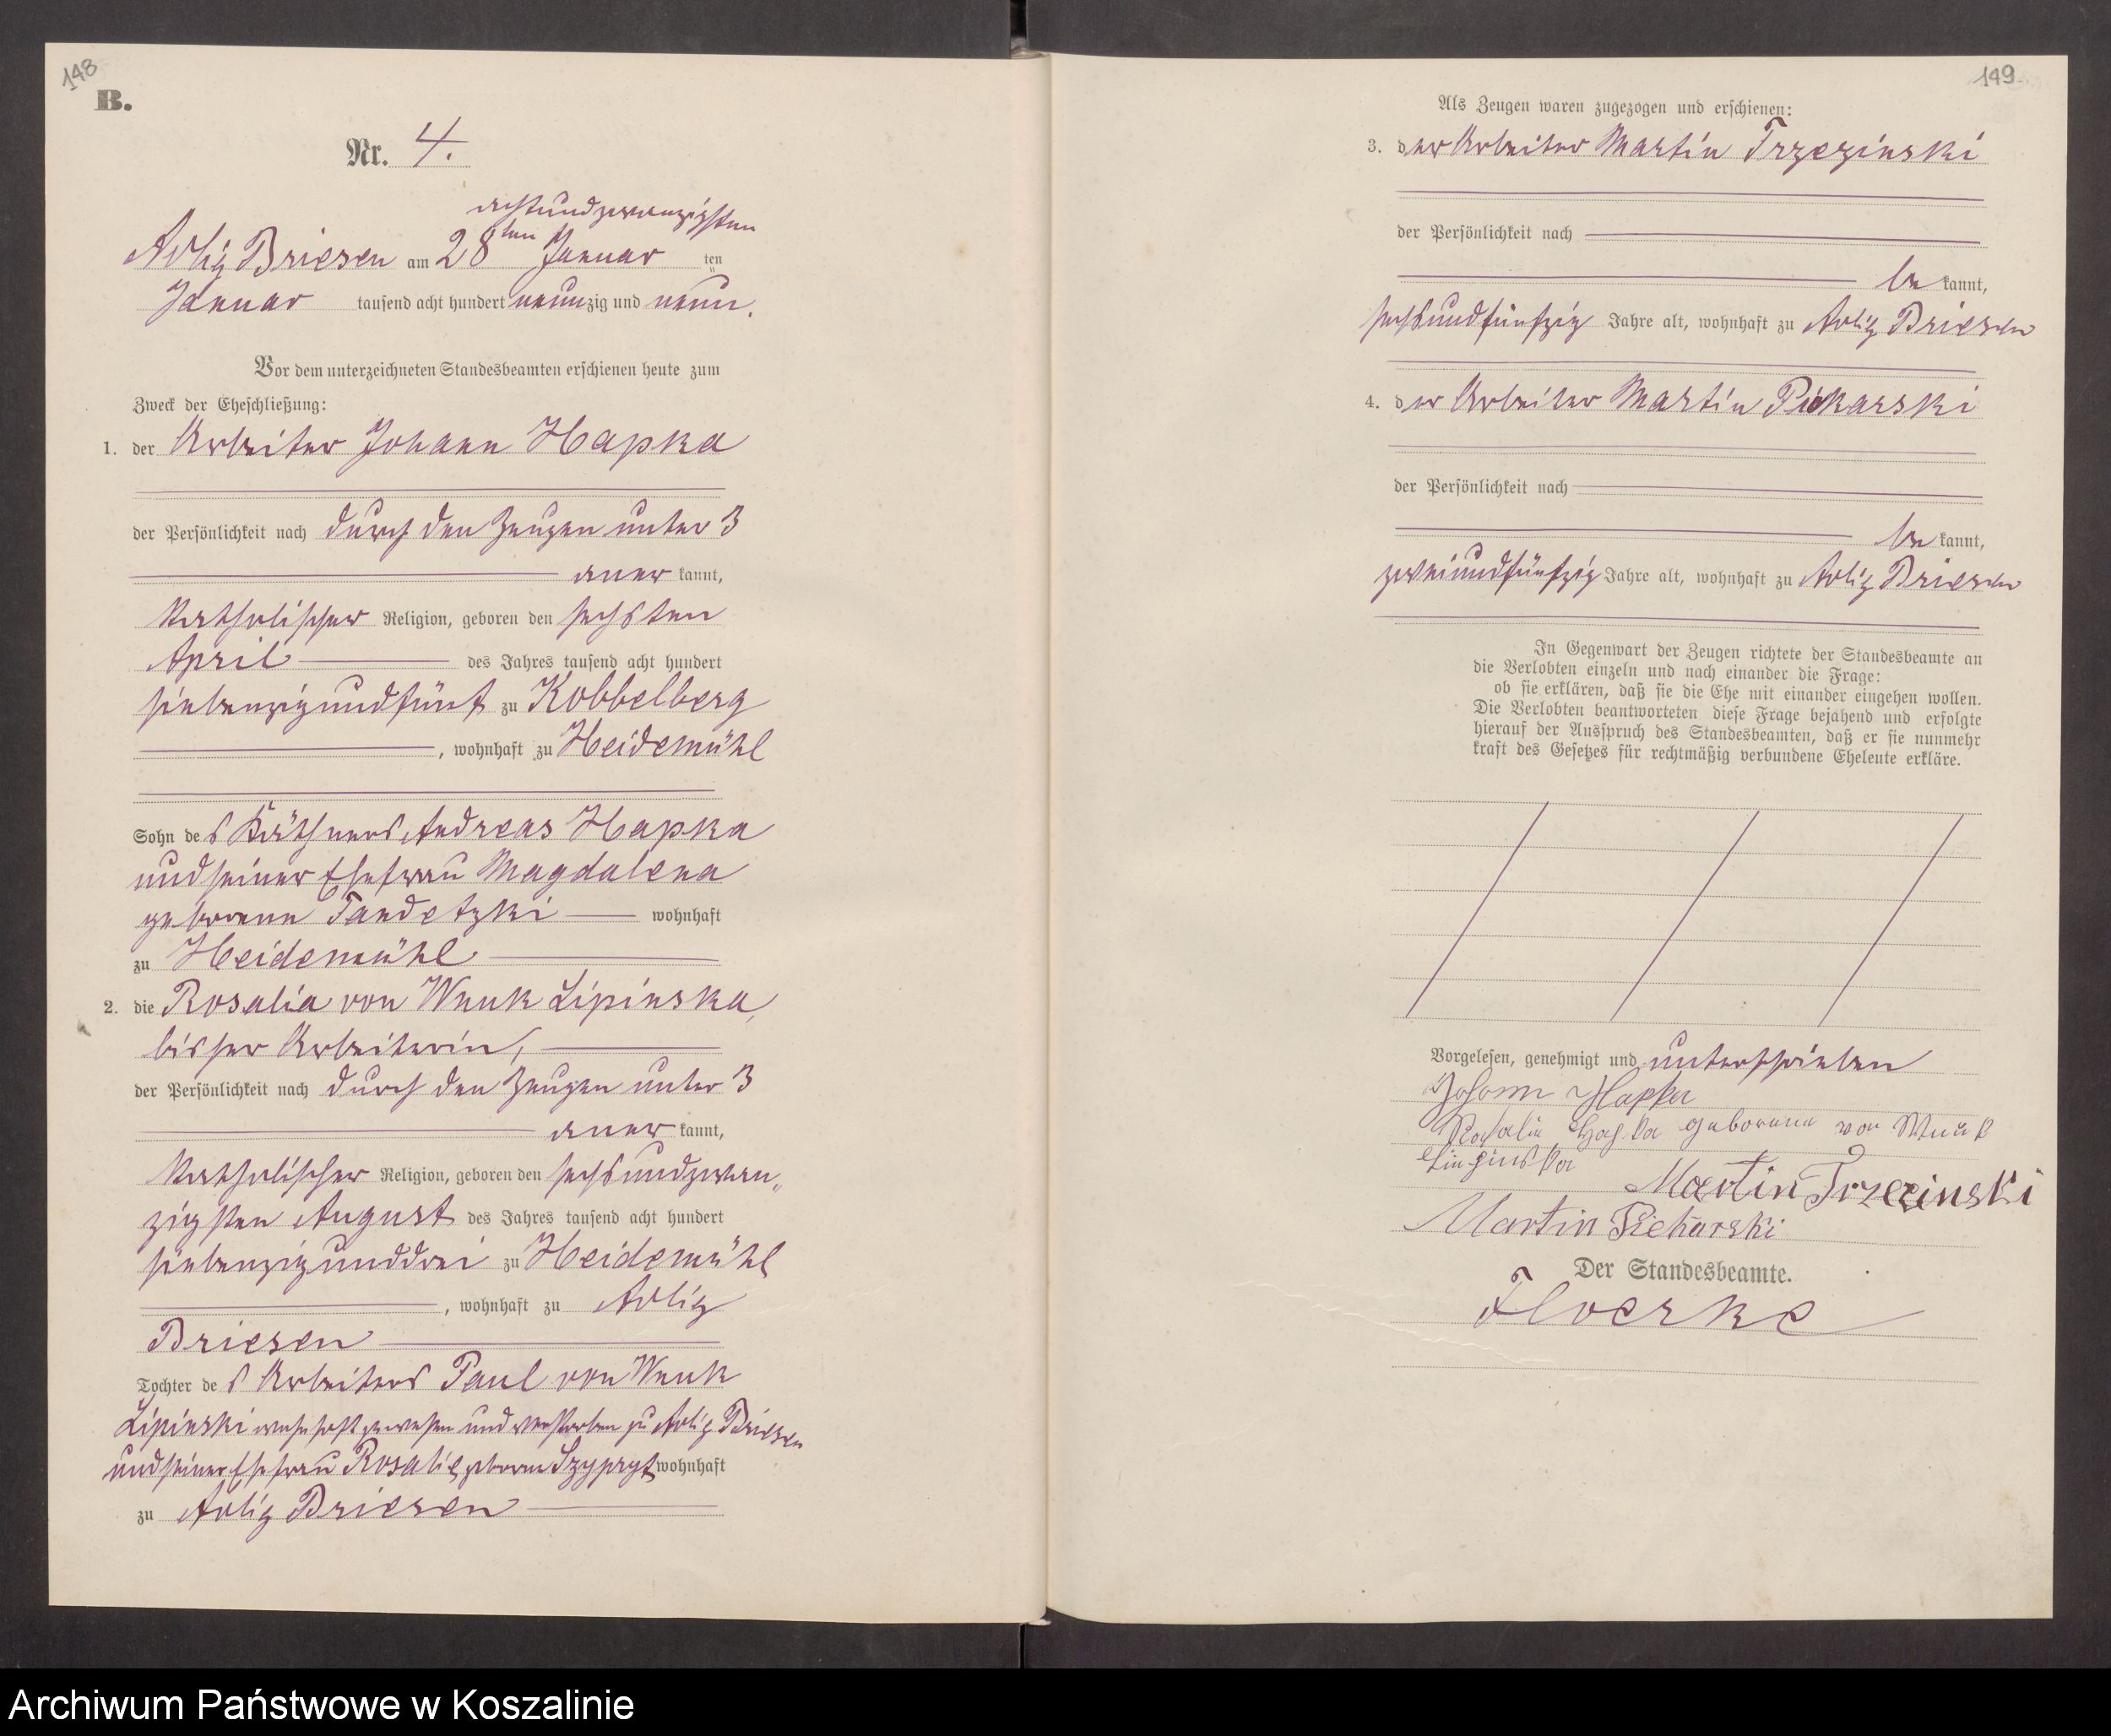 148
B.
Nr. 4.
achtundzwanzigsten
Adlig Briesen am 28ten Januar ten
Januar tausend acht hundert neunzig und neun.
Vor dem unterzeichneten Standesbeamten erschienen heute zum
Zweck der Eheschließung:
1. der Arbeiter Johann Hapka
der Persönlichkeit nach durch den Zeugen unter 3
anerkannt,
katholischer Religion, geboren den sechsten
April des Jahres tausend acht hundert
siebenzigundfünf zu Kobbelberg
, wohnhaft zu Heidemühl
Sohn des Käthners Andreas Hapka
und seiner Ehefrau Magdalena
geborene Tandetzki wohnhaft
zu Heidemühl
2. die Rosalia von Wnuk Lipinska,
bisher Arbeiterin,
der Persönlichkeit nach durch den Zeugen unter 3
anerkannt,
katholischer Religion, geboren den sechsundzwan„
zigsten August des Jahres tausend acht hundert
siebenzigunddrei zu Heidemühl
, wohnhaft zu Adlig
Briesen
Tochter des Arbeiters Paul von Wnuk
Lipinski wohnhaft gewesen und verstorben zu Adlig Briesen
und seiner Ehefrau Rosalie geborene Szypryt wohnhaft
zu Adlig Briesen
149
Als Zeugen waren zugezogen und erschienen:
3. der Arbeiter Martin Trzezinski
der Persönlichkeit nach
bekannt,
sechsundfünfzig Jahre alt, wohnhaft zu Adlig Briesen
4. der Arbeiter Martin Piekarski
der Persönlichkeit nach
bekannt,
zweiundfünfzig Jahre alt, wohnhaft zu Adlig Briesen
In Gegenwart der Zeugen richtete der Standesbeamte an
die Verlobten einzeln und nach einander die Frage:
ob sie erklären, daß sie die Ehe mit einander eingehen wollen.
Die Verlobten beantworteten diese Frage bejahend und erfolgte
hierauf der Ausspruch des Standesbeamten, daß er sie nunmehr
kraft des Gesetzes für rechtmäßig verbundene Eheleute erkläre.
Vorgelesen, genehmigt und unterschrieben
Johann Hapka
Rosalia Hapka geborene von Wnuk
Lipinska
Martin Trzecinski
Martin Piekarski
Der Standesbeamte.
Floerke
Archiwum Państwowe w Koszalinie